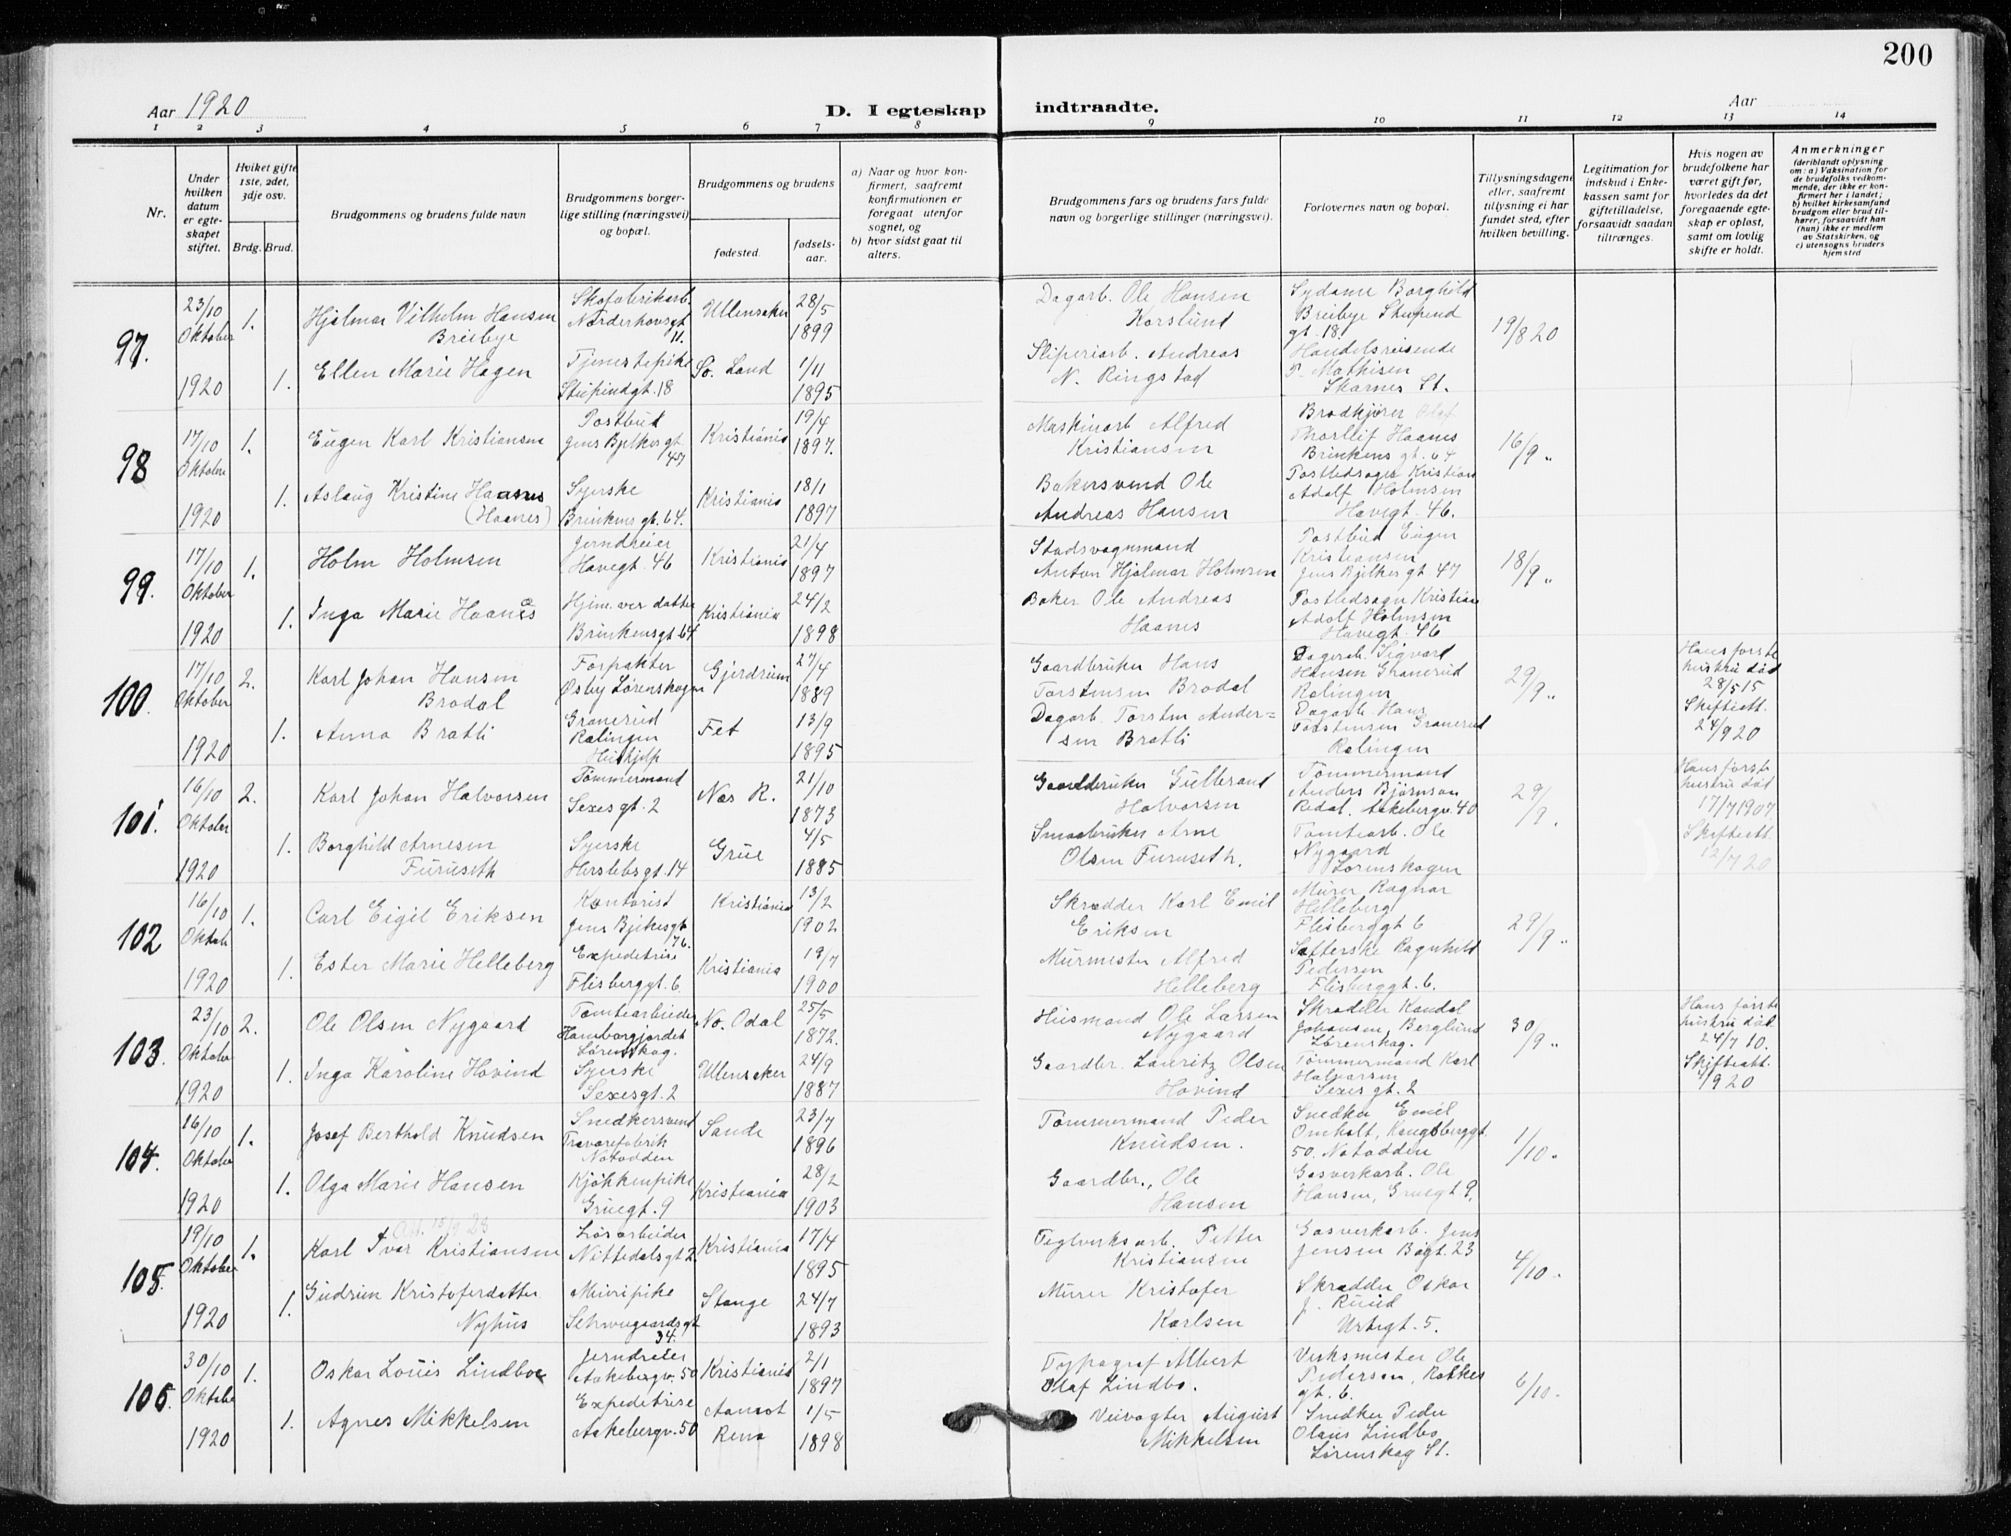 200
Aar 1920
D. I egteskap indtraadte.
Aar
1 2 3 4 5 6 7 8 9 10 11 12 13 14
Nr.
Under hvilken datum er egte-skapet stiftet.
Hviket gifte 1ste, 2det, 3dje osv.
Brdg. Brud.
Brudgommens og brudens fulde navn
Brudgommens borger-lige stilling (næringsvei) og bopæl.
Brudgommens og brudens
fødested.
fødsels-aar.
a) Naar og hvor kon-firmert, saafremt konfirmationen er foregaat utenfor sognet, og
b) hvor sidst gaat til alters.
Brudgommens fars og brudens fars fulde navn og borgerlige stillinger (næringsvei).
Forlovernes navn og bopæl.
Tillysningsdagene eller, saafremt tillysning ei har fundet sted, efter hvilken bevilling.
Legitimation for indskud i Enke-kassen samt for giftetilladelse, forsaavidt saadan tiltrænges.
Hvis nogen av brudefolkene har været gift før, hvorledes da det foregaaende egte-skap er opløst, samt om lovlig skifte er holdt.
Anmerkninger
(deriblandt oplysning om: a) Vaksination for de brudefolks vedkom-mende, der ikke er kon-firmert her i landet; b) hvilket kirkesamfund brudgom eller brud til-hører, forsaavidt han (hun) ikke er medlem av Statskirken, og c) utensogns bruders hjemsted
97. 23/10 Oktober 1920
1. Hjalmar Vilhelm Hansen Breibye
Skofabrikarb. Norderhovsgt 11.
Ullensaker 28/5 1899
Dagarb. Ole Hansen Korslund
Sydame Borghild Breibye Stupend gt. 18.
19/8 20
1. Ellen Marie Hagen
Tjenestepike Stupindgt. 18
So. Land 1/11 1895
Sliperiarb. Andreas N. Ringstad
Handelsreisende P. Mathisen Skarnes St.
98 17/10 Oktober 1920
1. Eugen Karl Kristiansen
Postbud Jens Bjelkes gt 47
Kristiania 19/4 1897.
Maskinarb Alfred Kristiansen
Brodkjører Olaf Thorleif Haanes Brinkens gt. 64
16/9 "
1. Aslaug Kristine Haanes (Haanes)
Syerske Brinkens gt. 64.
Kristiania 18/1 1897
Bakersvend Ole Andreas Hansen
Postledsager Kristian Adolf Holmsen Havegt. 46.
99. 17/10 Oktober 1920
1. Holm Holmsen
Jerndreier Havegt. 46
Kristiania 21/4 1897
Stadsvognmand Anton Hjalmar Holmsen
Postbud Eugen Kristiansen Jens Bjelkes gt 47
18/9 "
1. Inga Marie Haanes
Hjem.ver datter Brinkensgt. 64
Kristiania 24/2 1898
Baker Ole Andreas Haanes
Postledsager Kristian Adolf Holmsen Havegt. 46
100. 17/10 Oktober 1920
2. Karl Johan Hansen Brodal
Forpakter Østby Lørenskogen
Gjerdrum 27/4 1889
Gaardbruker Hans Torstensen Brodal
Dagarb. Sigvart Hansen Granerud Rælingen
29/9 "
Hans første hustru død 28/5 15 Skifteatt. 24/9 20
1. Anna Bratli
Granerud Rælingen Hushjelp
Fet 13/9 1895
Dagarb. Torsten Ander=sen Bratli
Dagarb. Hans Torstensen Granerud Rælingen
101. 16/10 Oktober 1920
2. Karl Johan Halvorsen
Tømmermand Sexesgt. 2
Næs R. 21/10 1873
Gaardbruker Gulbrand Halvorsen
Tømmermand Anders Bjørnson Rødal. Aakebergv. 40
29/9.
Hans første hustru død 17/7 1907. Skifteatt. 12/7 20
1. Borghild Arnesen Furuseth
Syerske Herslebsgt. 14
Grue 4/5 1885
Smaabruker Arne Olsen Furuseth.
Tomtearb. Ole Nygaard Lørenskogen
102 16/10 Oktob 1920
1. Carl Eigil Eriksen
Kontorist Jens Bjelkesgt 76.
Kristiania 13/2 1902
Skrædder Karl Emil Eriksen
Murer Ragnar Helleberg Flisberggt 6
29/9 "
1. Ester Marie Helleberg
Expeditrise Flisberggt. 6.
Kristiania 19/7 1900
Murmester Alfred Helleberg
Safterske Ragnhild Pedersen Flisberggt. 6.
103. 23/10 Oktober 1920
2. Ole Olsen Nygaard
Tomtearbeider Hamborgjordet Lørenskog.
No. Odal 25/5 1872.
Husmand Ole Larsen Nygaard
Skrædder Kandal Johansen, Berglund Lørenskog.
30/9 "
Hans første hustru død 24/7 10. Skifteatt. /9 20
1. Inga Karoline Hovind
Syerske Sexesgt. 2
Ullensaker 24/9 1887
Gaardbr. Lauritz Olsen Hovind
Tømmermand Karl Halvorsen Sexes gt. 2
104. 16/10 Oktober 1920
1. Josef Berthold Knudsen
Snedkersvend Trævarefabrik Notodden
Sande 23/7 1896
Tømmermand Peder Knudsen.
Snedker Emil Omholt, Kongsberggt. 50. Notodden
1/10.
1. Olga Marie Hansen
Kjøkkenpike Gruegt. 9
Kristiania 28/2 1903
Gaardbr., Ole Hansen
Gasverkarb. Ole Hansen, Gruegt 9.
105. 19/10 Oktober 1920
15/9 28
1. Karl Ivar Kristiansen
Lørarbeider Nittedalsgt 2.
Kristiania 17/4 1895
Teglverksarb. Petter Kristiansen
Gasverkarb. Jens Jensen Bøgt. 23
4/10.
1. Gudrun Kristofersdatter Nyhus
Meieripike Schweigaardsgt 34.
Stange 24/7 1893
Murer Kristofer Karlsen
Skrædder Oskar J. Ruud Urtegt. 5.
106. 30/10 Oktober 1920
1. Oskar Louis Lindboe
Jerndreier Aakebergv. 50
Kristiania 2/1 1897
Typograf Albert Olaf Lindbo.
Verksmester Ole Pedersen, Rakkes gt. 6.
6/10.
1. Agnes Mikkelsen
Expeditrise Aakebergv. 50
Aamot Rena 1/5 1898
Veivogter August Mikkelsen
Snedker Peder Olaus Lindbo Lørenskog St.